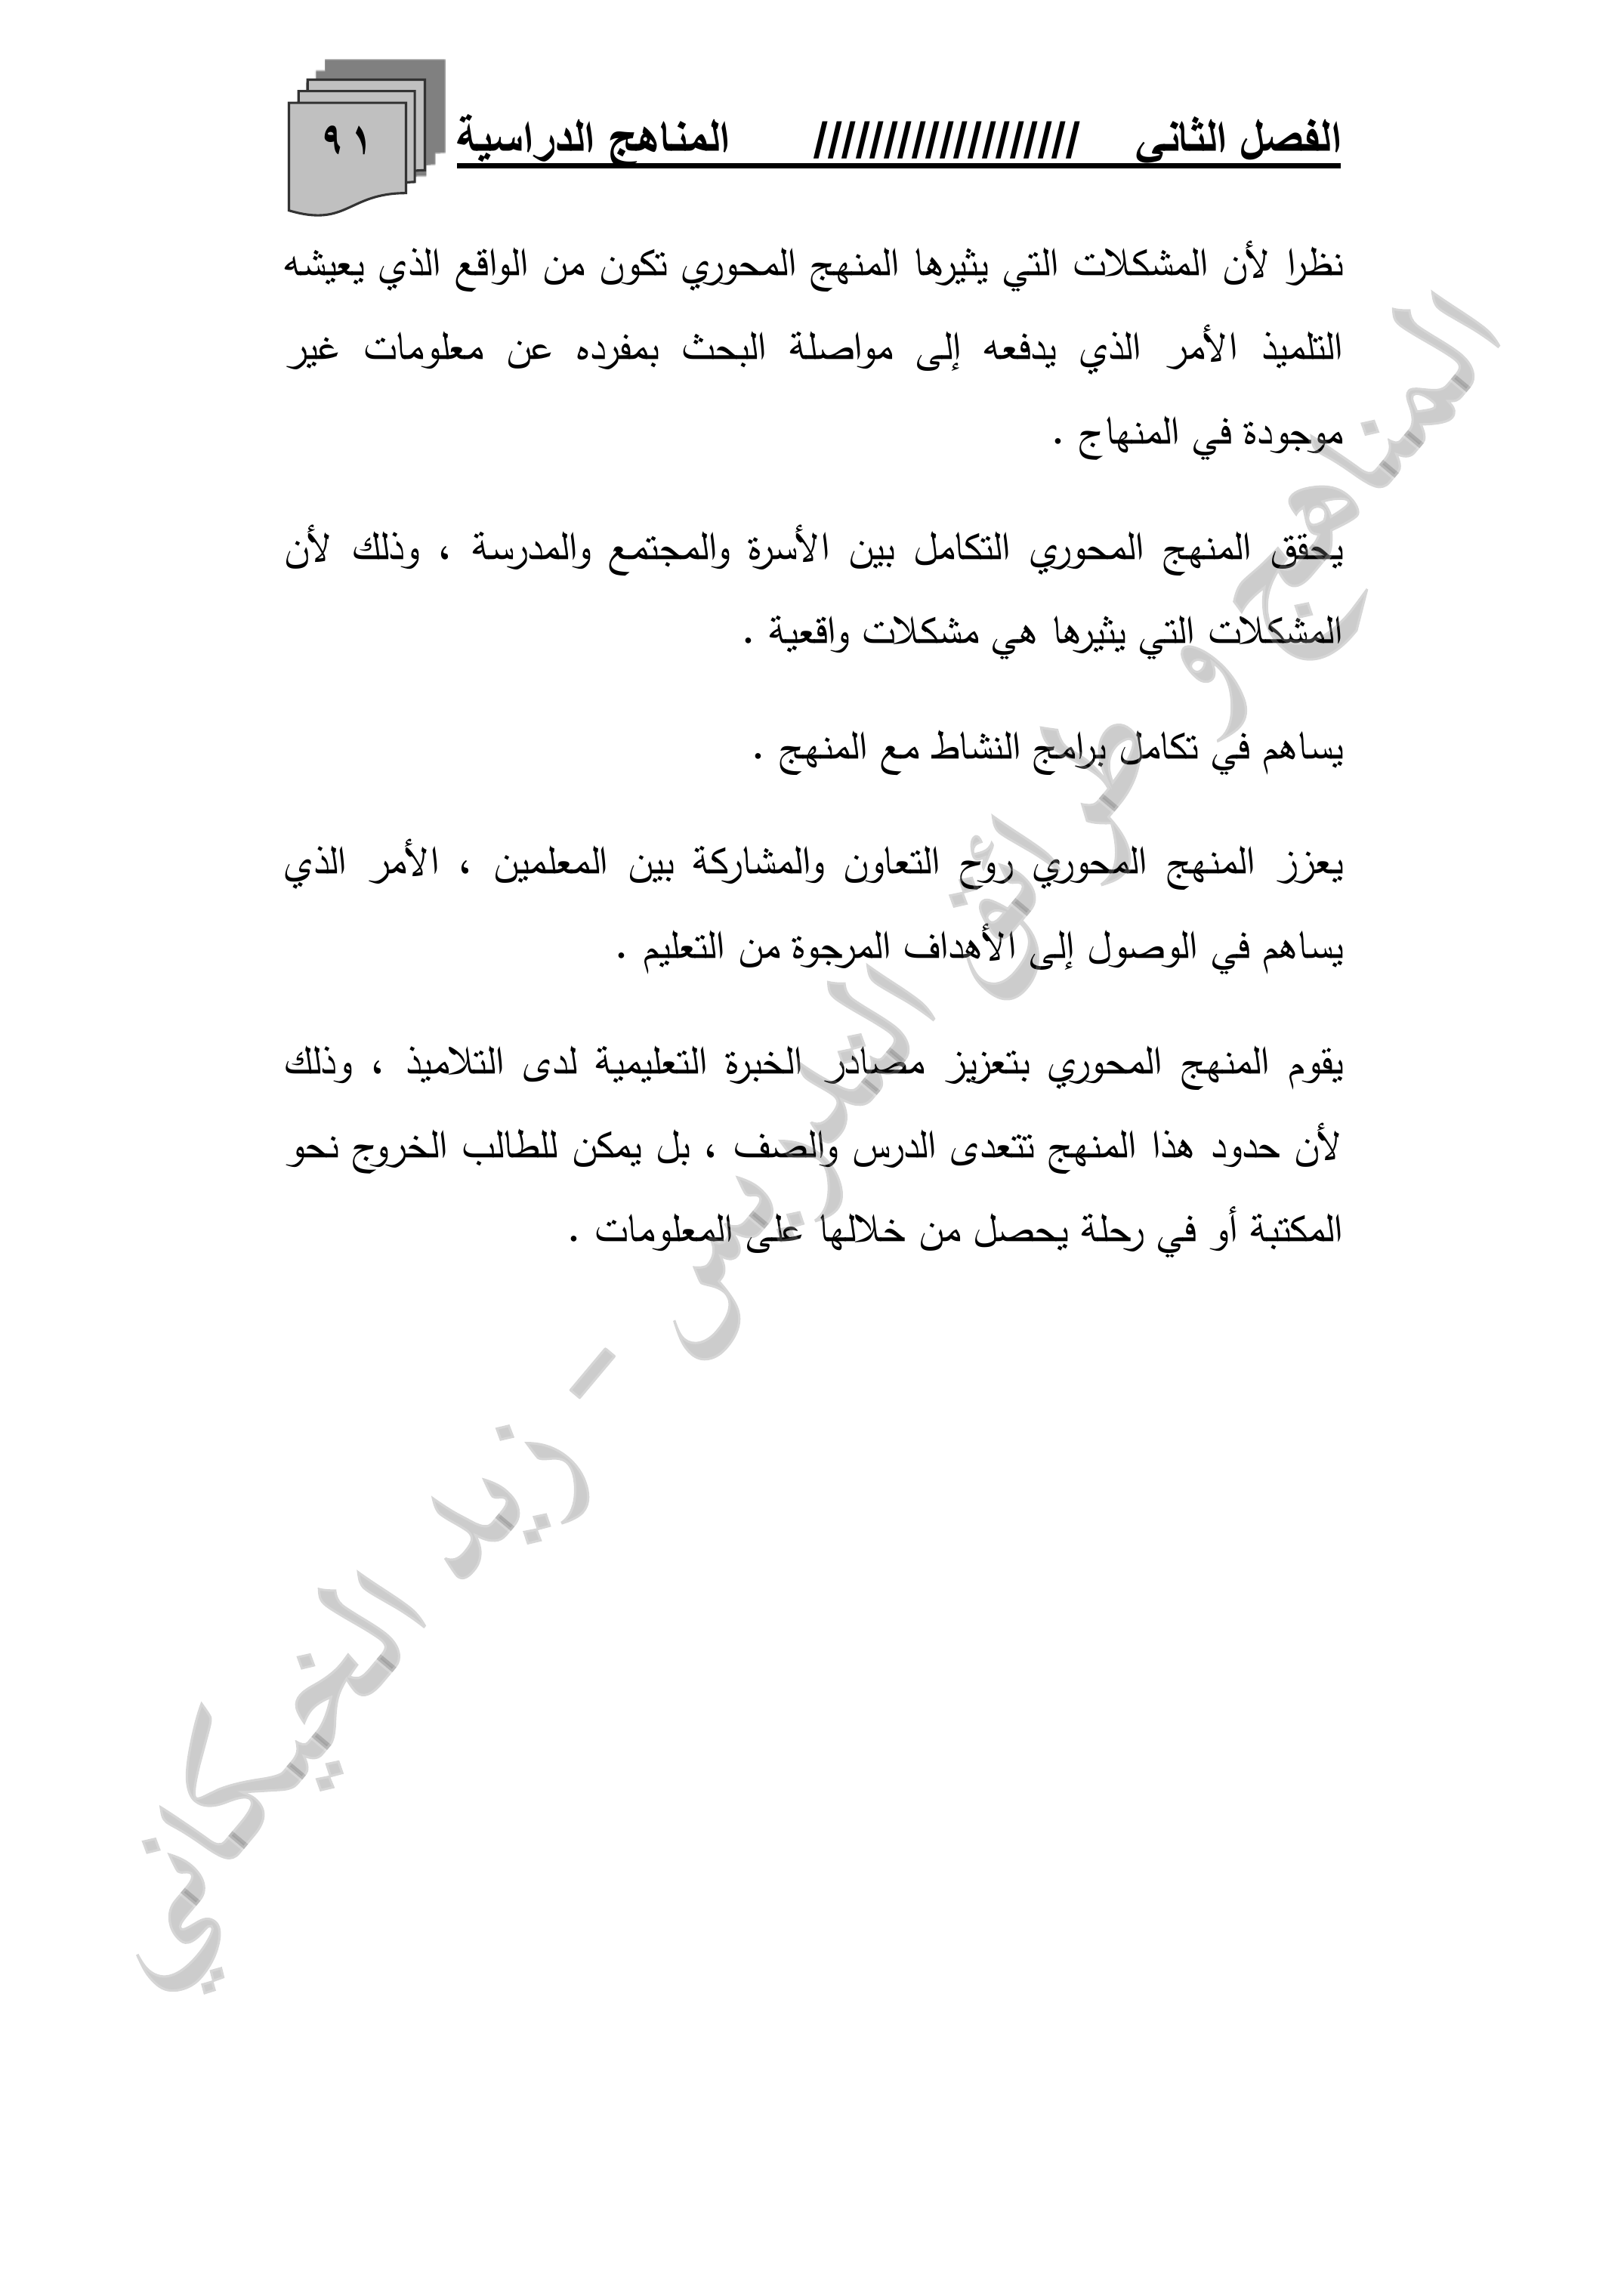 الفصل الثاني /////////////////// المناهج الدراسية ٩١
نظرا لأن المشكلات التي يثيرها المنهج المحوري تكون من الواقع الذي يعيشه
التلميذ الأمر الذي يدفعه إلى مواصلة البحث بمفرده عن معلومات غير
موجودة في المنهاج .
يحقق المنهج المحوري التكامل بين الأسرة والمجتمع والمدرسة ، وذلك لأن
المشكلات التي يثيرها هي مشكلات واقعية .
يساهم في تكامل برامج النشاط مع المنهج .
يعزز المنهج المحوري روح التعاون والمشاركة بين المعلمين ، الأمر الذي
يساهم في الوصول إلى الأهداف المرجوة من التعليم .
يقوم المنهج المحوري بتعزيز مصادر الخبرة التعليمية لدى التلاميذ ، وذلك
لأن حدود هذا المنهج تتعدى الدرس والصف ، بل يمكن للطالب الخروج نحو
المكتبة أو في رحلة يحصل من خلالها على المعلومات .
المناهج و طرائق التدريس - زيد الخيكاني